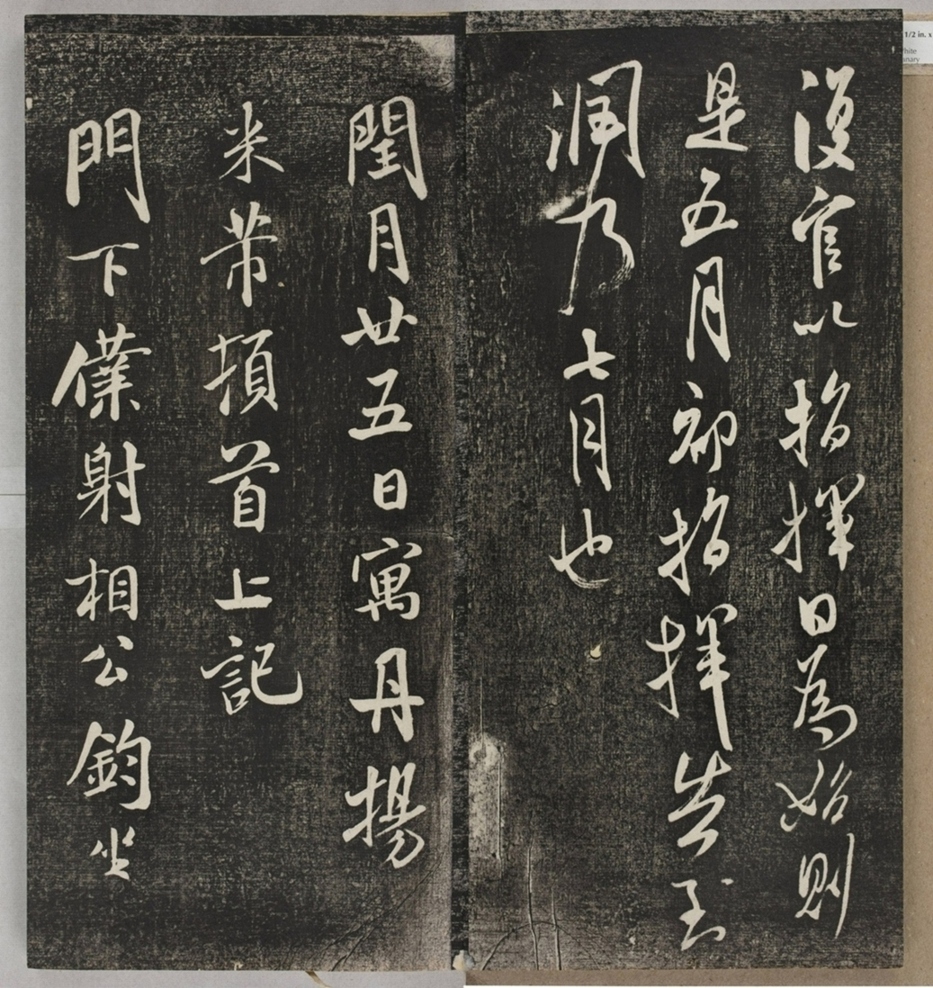 復官以指揮日為始則
是五月初指揮告至
潤乃七月也
閏月廿五日寓丹楊
米芾頓首上記
門下僕射相公鈞坐
1/2 in. x